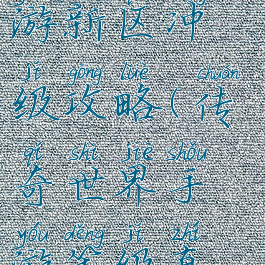 游新区冲
jí gōng lüè chuán
级攻略(传
qí shì jiè shǒu
奇世界手
yóu děng jí zhí
游等级直